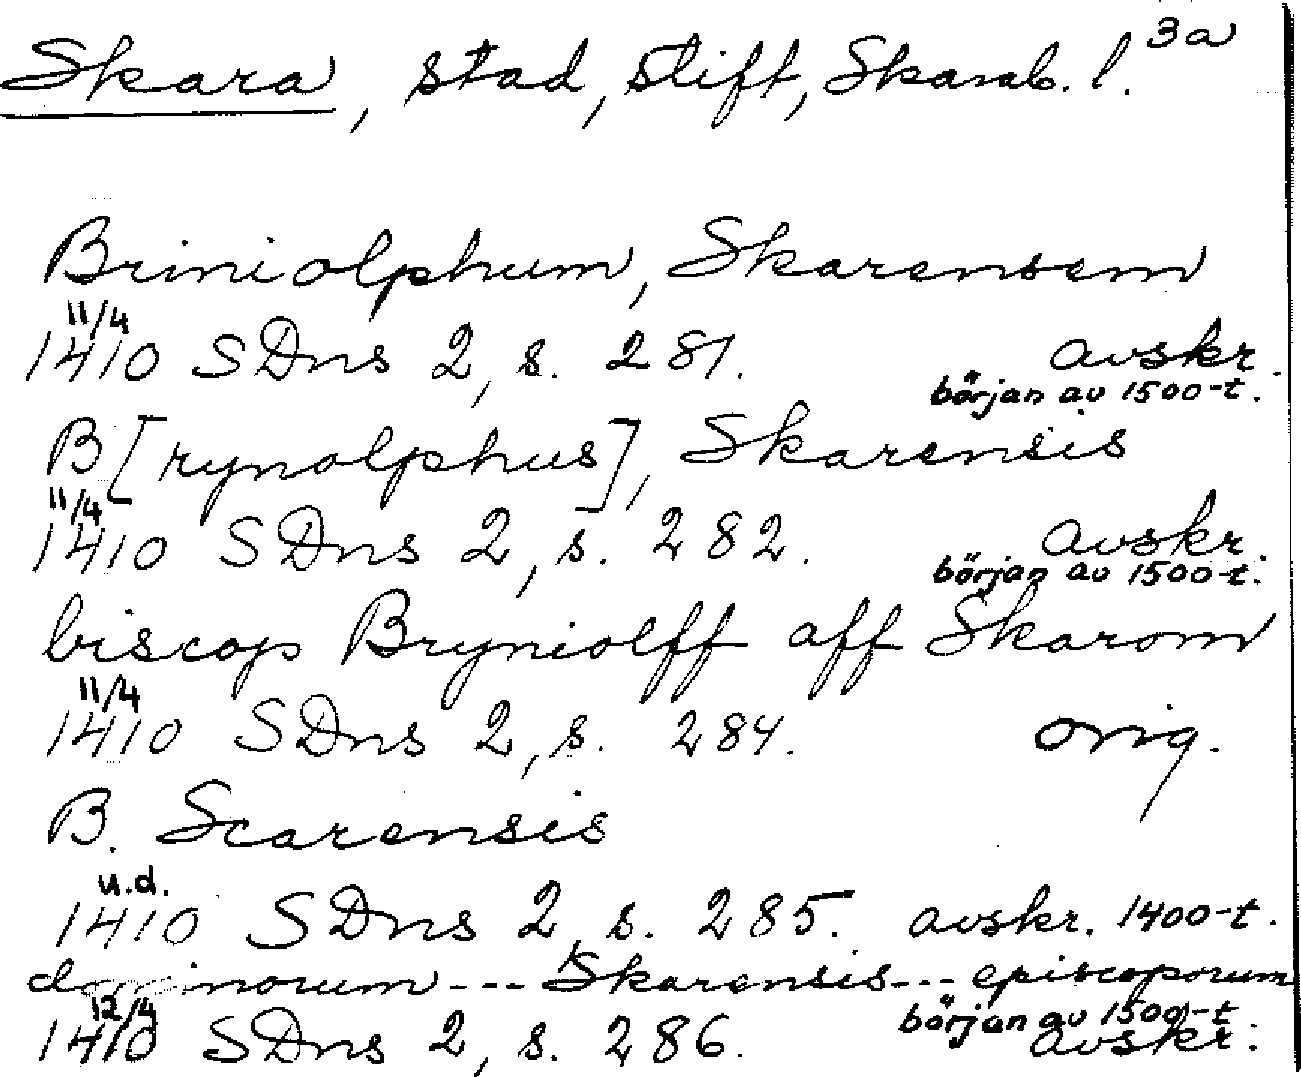 Skara, stad, stift, Skarab. l. 3a
Briniolphum, Skarensem
11/4
1410 SDns 2, s. 281. avskr.
början av 1500-t.
B[rynolphus], Skarensis
11/4
1410 SDns 2, s. 282. avskr.
början av 1500-t.
biscop Bryniolff aff Skarom
11/4
1410 SDns 2, s. 284. orig.
B. Scarensis
u.d.
1410 SDns 2, s. 285. avskr. 1400-t.
dominorum --- Skarensis --- episcoporum
12/4 början av 1500-t.
1410 SDns 2, s. 286. avskr.